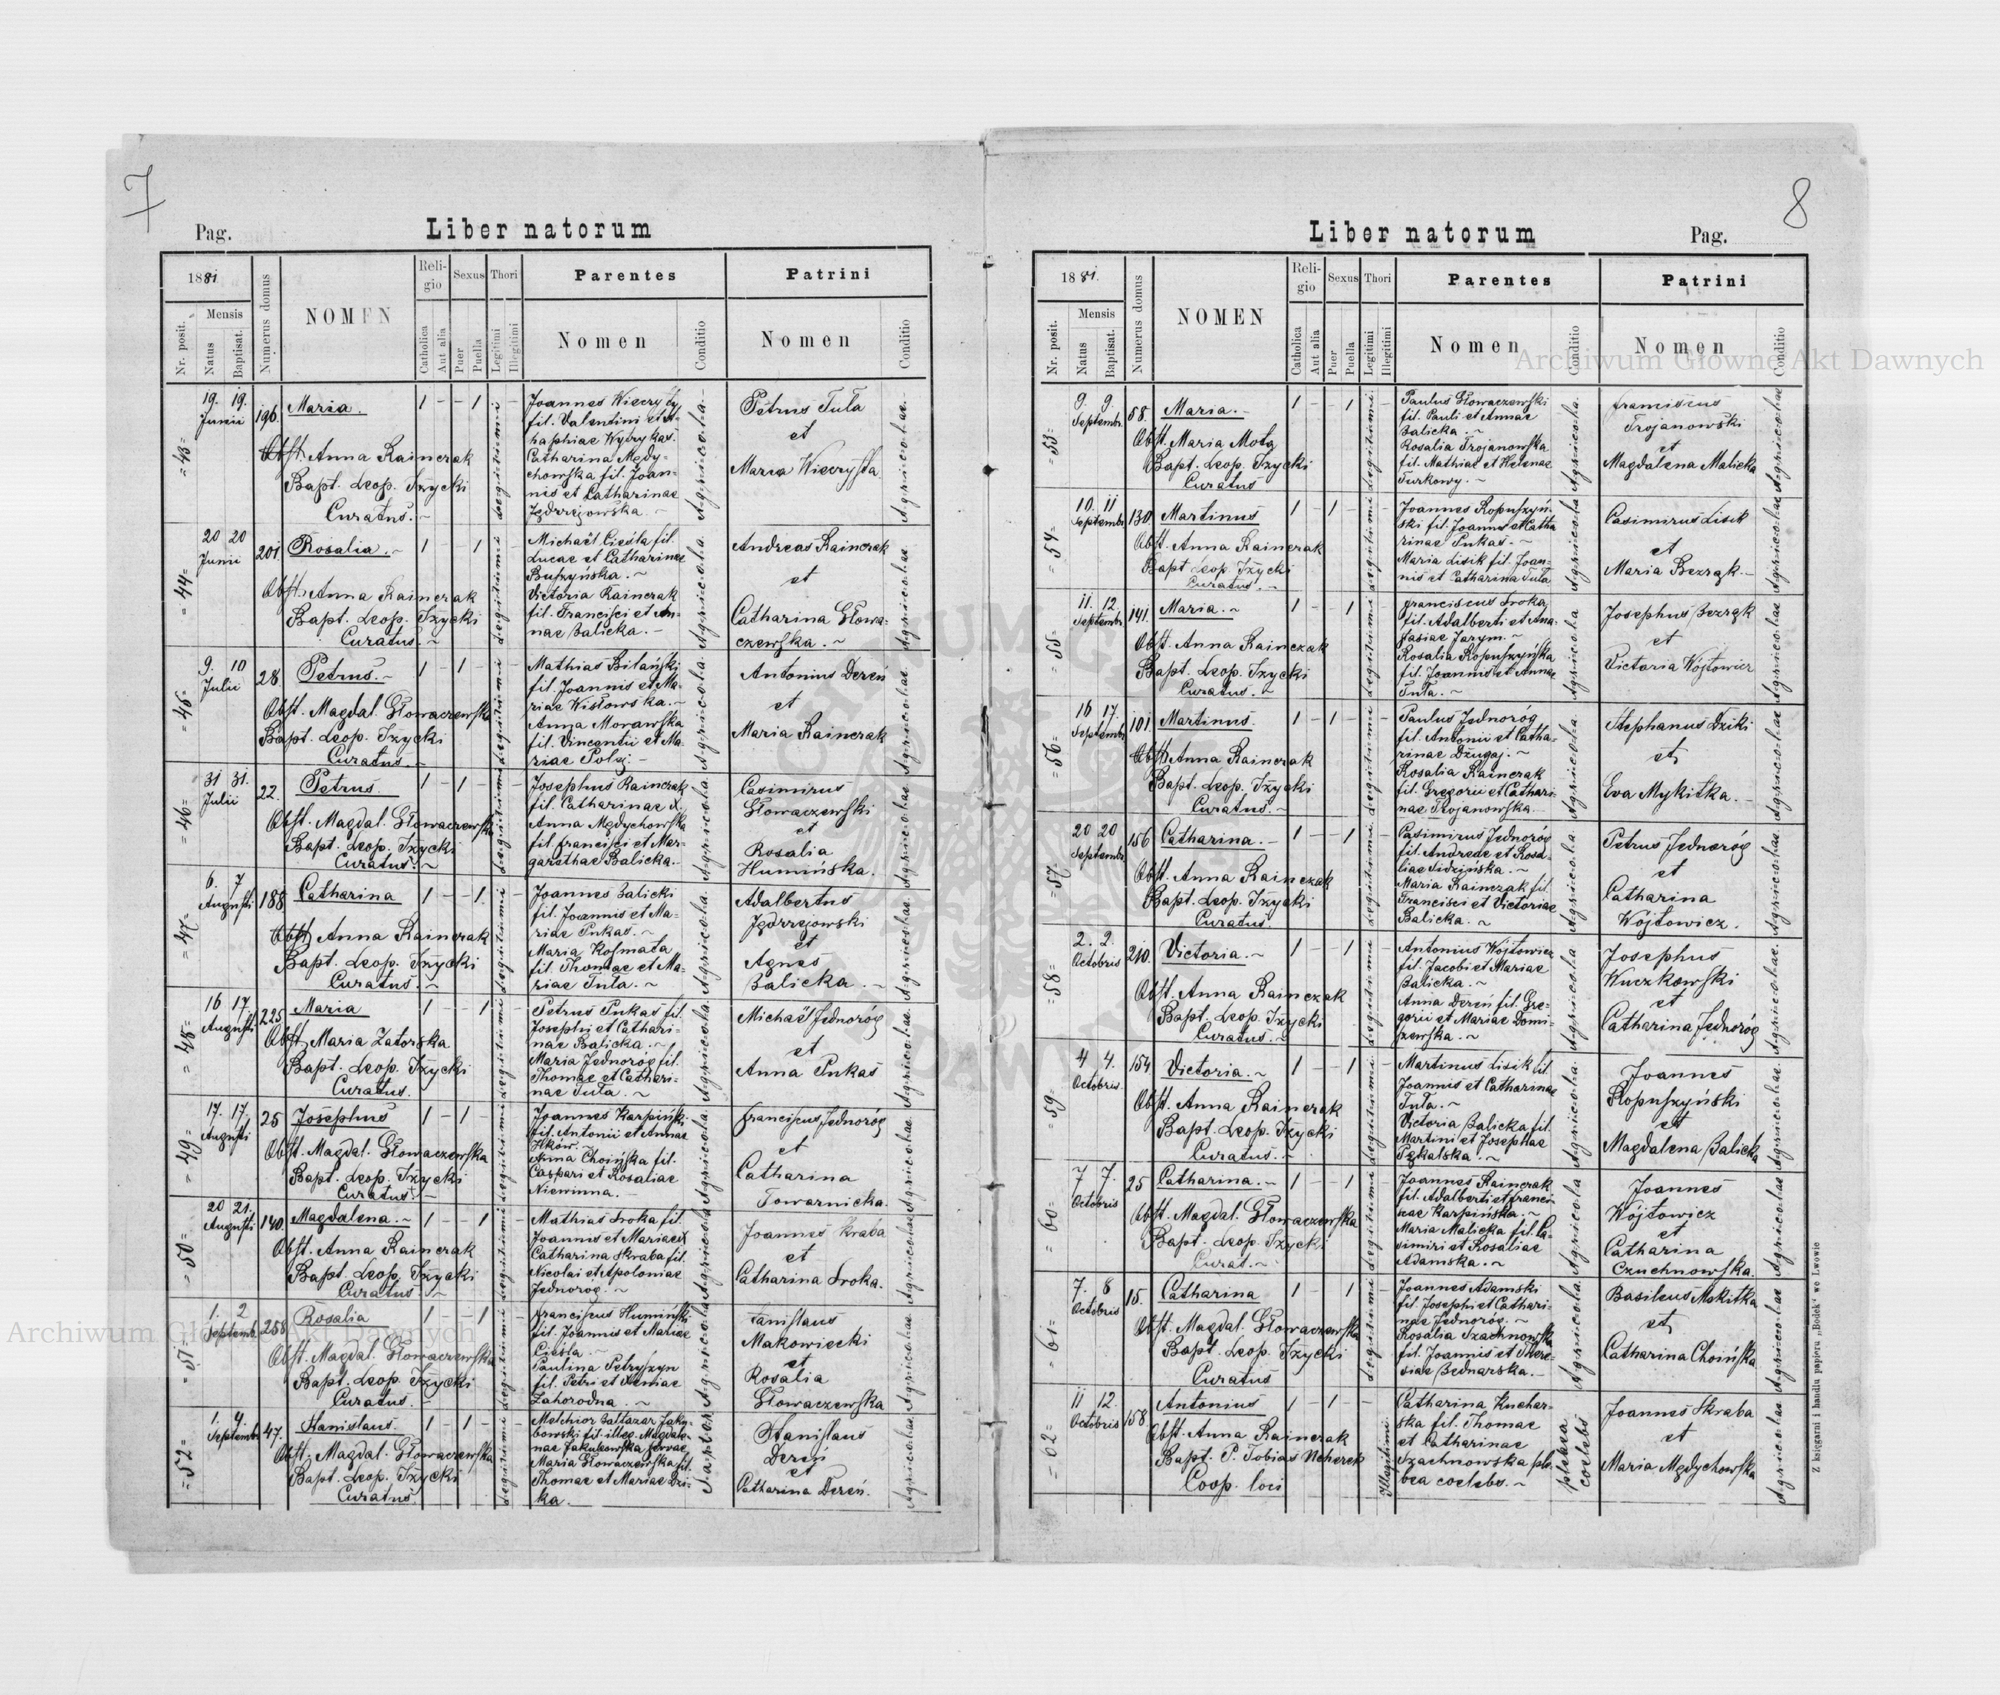 7
Pag.
Liber natorum
1881.
Numerus domus
NOMEN
Religio
Sexus
Thori
Parentes
Patrini
Nr. posit.
Mensis
Natus
Baptisat.
Catholica
Aut alia
Puer
Puella
Legitimi
Illegitimi
Nomen
Conditio
Nomen
Conditio
=43=
19. 19.
Junii
196.
Maria.
1 – – 1 –
Obst. Anna Rainczak
Bapt. Leop. Iżycki
Curatus.
Legitimi
Catharina Mędy-
chowska fil. Joan-
nis et Catharinae
Jędrzejowska.
Agricolae
Petrus Tuła
et
Agricolae.
=44=
20 20
Junii
201
Rosalia.
1 – 1
Obst. Anna Rainczak
Bapt. Leop. Iżycki
Curatus.
Legitimi
Michaël Cieśla fil.
Lucae et Catharinae
Buszyńska.
Victoria Rainczak
fil. Francisci et An-
nae Balicka.
Agricolae.
Andreas Rainczak
et
Catharina Głowa-
czewska.
Agricolae.
=45=
9. 10
Julii
28
Petrus.
1 – 1 –
Obst. Magdal. Głowaczewska
Bapt. Leop. Iżycki
Curatus.
Legitimi
Mathias Bilański
fil. Joannis et Ma-
riae Wisłowska.
Anna Morawska
fil. Vincentii et Ma-
riae Polej.
Agricolae.
Antonius Dereń
et
Maria Rainczak
Agricolae.
=46=
31 31.
Julii
22.
Petrus.
1 – 1 –
Obst. Magdal. Głowaczewska
Bapt. Leop. Iżycki
Curatus.
Legitimi
Josephus Rainczak
fil. Catharinae et
Anna Mędychowska
fil. Francisci et Mar-
garathae Balicka.
Agricolae.
Casimirus
Głowaczewski
et
Rosalia
Humińska.
Agricolae.
=47=
6. 7
Augusti
188
Catharina
1 – – 1 –
Obst. Anna Rainczak
Bapt. Leop. Iżycki
Curatus.
Legitimi
Joannes Balicki
fil. Joannis et Ma-
riae Pukas.
Maria Kosmata
fil. Thomae et Ma-
riae Tuła.
Agricolae.
Adalbertus
Jędrzejowski
et
Agnes
Balicka.
Agricolae.
=48=
16 17
Augusti
225
Maria
1 – 1
Obst. Maria Zatorska
Bapt. Leop. Iżycki
Curatus.
Legitimi
Petrus Pukas fil.
Josephi et Cathari-
nae Balicka.
Maria Jednoróg fil.
Thomae et Cathari-
nae Tuła.
Agricolae.
Michaël Jednoróg
et
Anna Pukas
Agricolae.
=49=
17. 17.
Augusti
25
Josephus
1 – 1 –
Obst. Magdal. Głowaczewska
Bapt. Leop. Iżycki
Curatus.
Legitimi
Joannes Karpiński
fil. Antonii et Annae
Anna Choińska fil.
Caspari et Rosaliae
Niewinna.
Agricolae.
Franciscus Jednoróg
et
Catharina
Towarnicka.
Agricolae.
=50=
20 21.
Augusti
140.
Magdalena.
1 – – 1
Obst. Anna Rainczak
Bapt. Leop. Iżycki
Curatus.
Legitimi
Mathias Sroka fil.
Joannis et Mariae et
Catharina Skraba fil.
Nicolai et Apoloniae
Jednorog.
Agricolae
Joannes Skraba
et
Catharina Sroka.
Agricolae
=51=
1. 2
Septemb.
258
Rosalia
1 – – 1
Obst. Magdal. Głowaczewska
Bapt. Leop. Iżycki
Curatus.
Legitimi
Franciscus Humiński
fil. Joannis et Mariae
Cieśla.
Paulina Petryszyn
fil. Petri et Xeniae
Zahorodna.
Agricolae
Stanislaus
Makowiecki
et
Rosalia
Głowaczewska
Agricolae
=52=
1. 4.
Septemb.
47.
Stanislaus.
1 – 1 –
Obst. Magdal. Głowaczewska
Bapt. Leop. Iżycki
Curatus
Legitimi
Melchior Baltazar Jaku-
bowski fil. illeg. Magdale-
nae Jakubowska
Maria Głowaczewska fil.
Thomae et Mariae Dzi-
ka.
Stanislaus
Dereń
et
Catharina Dereń.
Agricolae
8
Liber natorum
Pag.
1881.
Numerus domus
NOMEN
Religio
Sexus
Thori
Parentes
Patrini
Nr. posit.
Mensis
Natus
Baptisat.
Catholica
Aut alia
Puer
Puella
Legitimi
Illegitimi
Nomen
Conditio
Nomen
Conditio
=53=
9. 9.
Septembr.
58.
Maria.
1 – 1 –
Obst. Maria Motą
Bapt. Leop. Iżycki
Curatus
Legitimi
Paulus Głowaczewski
fil. Pauli et Annae
Balicka.
Rosalia Trojanowska
fil. Mathiae et Helenae
Turkowy.
Agricolae.
Franciscus
Trojanowski
et
Magdalena Malicka
Agricolae
=54=
10. 11
Septembr.
130.
Martinus
1 – 1 –
Obst. Anna Rainczak
Bapt. Leop. Iżycki
Curatus.
Legitimi
Joannes Ropuszyń-
ski fil. Joannis et Catha
rinae Pukas.
Maria Lisik fil. Joan-
nis et Catharina Tuła
Agricolae
Casimirus Lisik
et
Maria Bezrąk.
Agricolae
=55=
11. 12.
Septembr.
141.
Maria.
1 – 1 –
Obst. Anna Rainczak
Bapt. Leop. Iżycki
Curatus.
Legitimi
Franciscus Sroka
fil. Adalberti et Ana-
stasiae Jarym.
Rosalia Ropuszyńska
fil. Joannis et Annae
Tuła.
Agricolae.
Josephus Bezrąk
et
Victoria Wójtowicz
Agricolae.
=56=
16 17.
Septembr.
101.
Martinus.
1 – 1 –
Obst. Anna Rainczak
Bapt. Leop. Iżycki
Curatus.
Legitimi
Paulus Jednoróg
fil. Antonii et Catha-
rinae Dżugaj.
Rosalia Rainczak
fil. Gregorii et Cathari-
nae Trojanowska.
Agricolae
Stephanus Dziki
et
Eva Mykitka.
Agricolae
=57=
20 20
Septembr.
156
Catharina.
1 – 1 –
Obst. Anna Rainczak
Bapt. Leop. Iżycki
Curatus.
Legitimi
Casimirus Jednoróg
fil. Andreae et Rosa-
liae Sidzińska.
Maria Rainczak fil.
Francisci et Victoriae
Balicka.
Agricolae.
Petrus Jednoróg
et
Catharina
Wójtowicz.
Agricolae.
=58=
2. 2.
Octobris
210.
Victoria.
1 – 1 –
Obst. Anna Rainczak
Bapt. Leop. Iżycki
Curatus.
Legitimi
Antonius Wójtowicz
fil. Jacobi et Mariae
Balicka.
Anna Dereń fil. Gre-
gorii et Mariae Domi-
szewska.
Agricolae
Josephus
Wuczkowski
et
Catharina Jednoróg
Agricolae.
=59=
4 4.
Octobris.
154
Victoria.
1 – 1 –
Obst. Anna Rainczak
Bapt. Leop. Iżycki
Curatus.
Legitimi
Martinus Lisik fil.
Joannis et Catharinae
Tuła.
Victoria Balicka fil.
Martini et Josephae
Pękalska.
Agricolae.
Joannes
Ropuszyński
et
Magdalena Balicka
Agricolae.
=60=
7 7.
Octobris
25
Catharina.
1 – – 1
Obst. Magdal. Głowaczewska
Bapt. Leop. Iżycki
Curat.
Legitimi
Joannes Rainczak
fil. Adalberti et Franci-
scae Karpińska.
Maria Malicka fil. Ca-
simiri et Rosaliae
Adamska.
Agricolae
Joannes
Wójtowicz
et
Catharina
Czuchnowska.
Agricolae
=61=
7. 8
Octobris
15.
Catharina
1 – 1 –
Obst. Magdal. Głowaczewska
Bapt. Leop. Iżycki
Curatus
Legitimi
Joannes Adamski
fil. Josephi et Cathari-
nae Jednoróg.
Rosalia Szachnowska
fil. Joannis et There-
siae Bednarska.
Agricolae.
Basileus Mokitka
et
Catharina Choińska
Agricolae
=62=
11 12.
Octobris
158
Antonius
1 – 1 –
Obst. Anna Rainczak
Bapt. P. Tobias Neherek
Coop. loci
Illegitimi
Catharina Kuchar-
ska fil. Thomae
et Catharinae
Szachnowska ple-
bea coelebs.
plebea
coelebs
Joannes Skraba
et
Maria Mędychowska
Agricolae
Z księgarni i handlu papieru „Bodek" we Lwowie
Archiwum Główne Akt Dawnych
Archiwum Główne Akt Dawnych